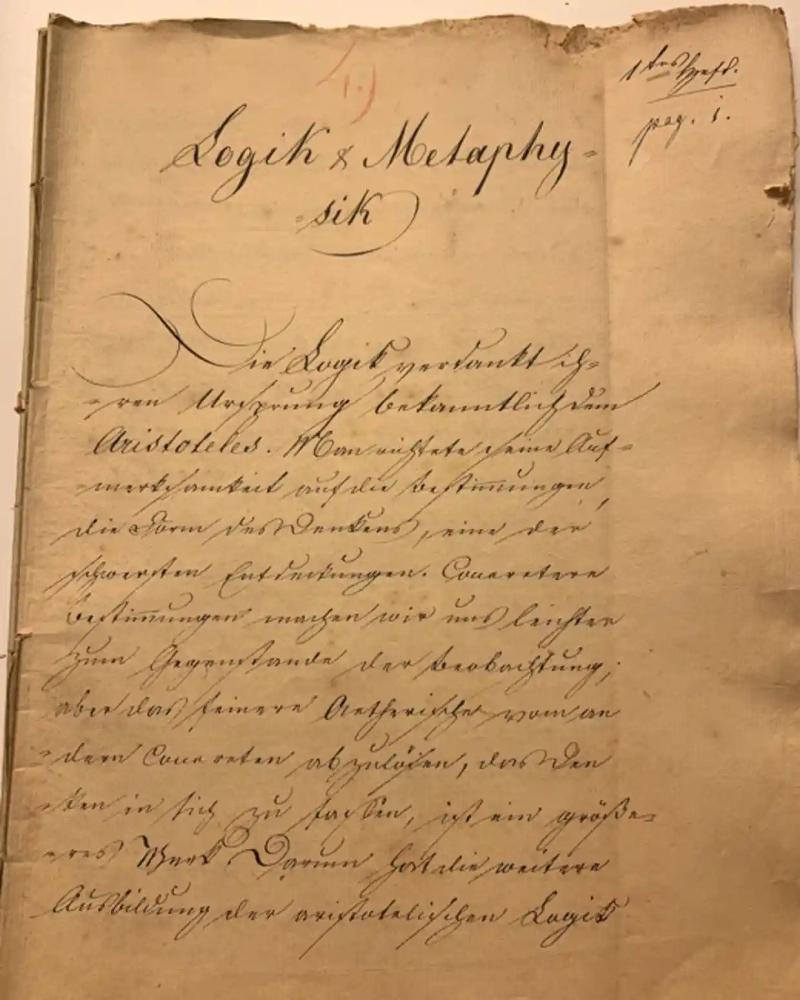 4.)
1tes Heft.
pag. 1.
Logik & Metaphy-
-sik
Die Logik verdankt ih-
-ren Ursprung bekanntlich dem
Aristoteles. Man richtete seine Auf-
-merksamkeit auf die Bestimmungen,
die Form des Denkens, eine der
schwersten Entdeckungen. Concretere
Bestimungen machen wir uns leichter
zum Gegenstande der Beobachtung;
aber das feinere Aetherische vom an
-dern Concreten abzulösen, das Den
-ken in sich zu fassen, ist ein größe-
-res Werk Darum hat die weitere
Ausbildung der aristotelischen Logik